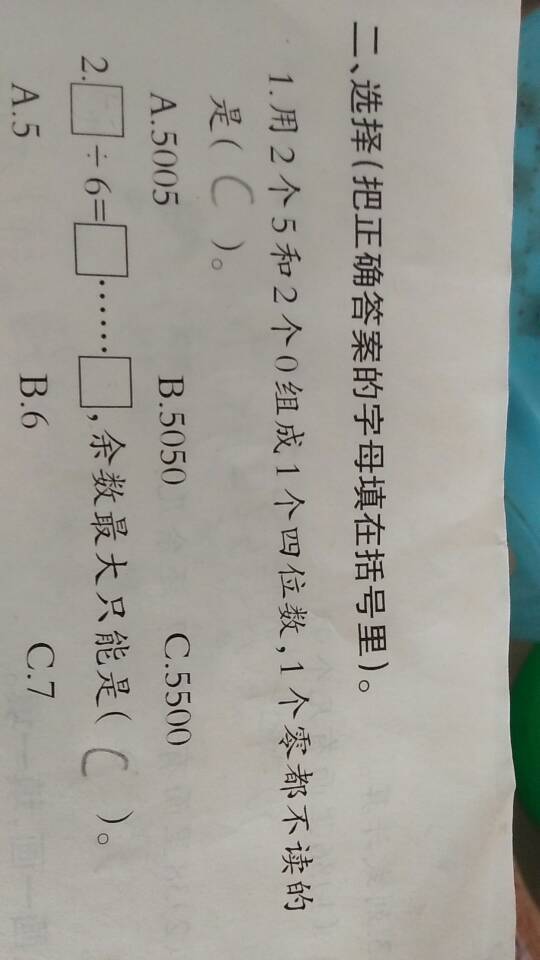 二、选择(把正确答案的字母填在括号里)。
1.用2个5和2个0组成1个四位数,1个零都不读的
是( C )。
A.5005 B.5050 C.5500
2.□÷6=□……□,余数最大只能是( C )。
A.5 B.6 C.7